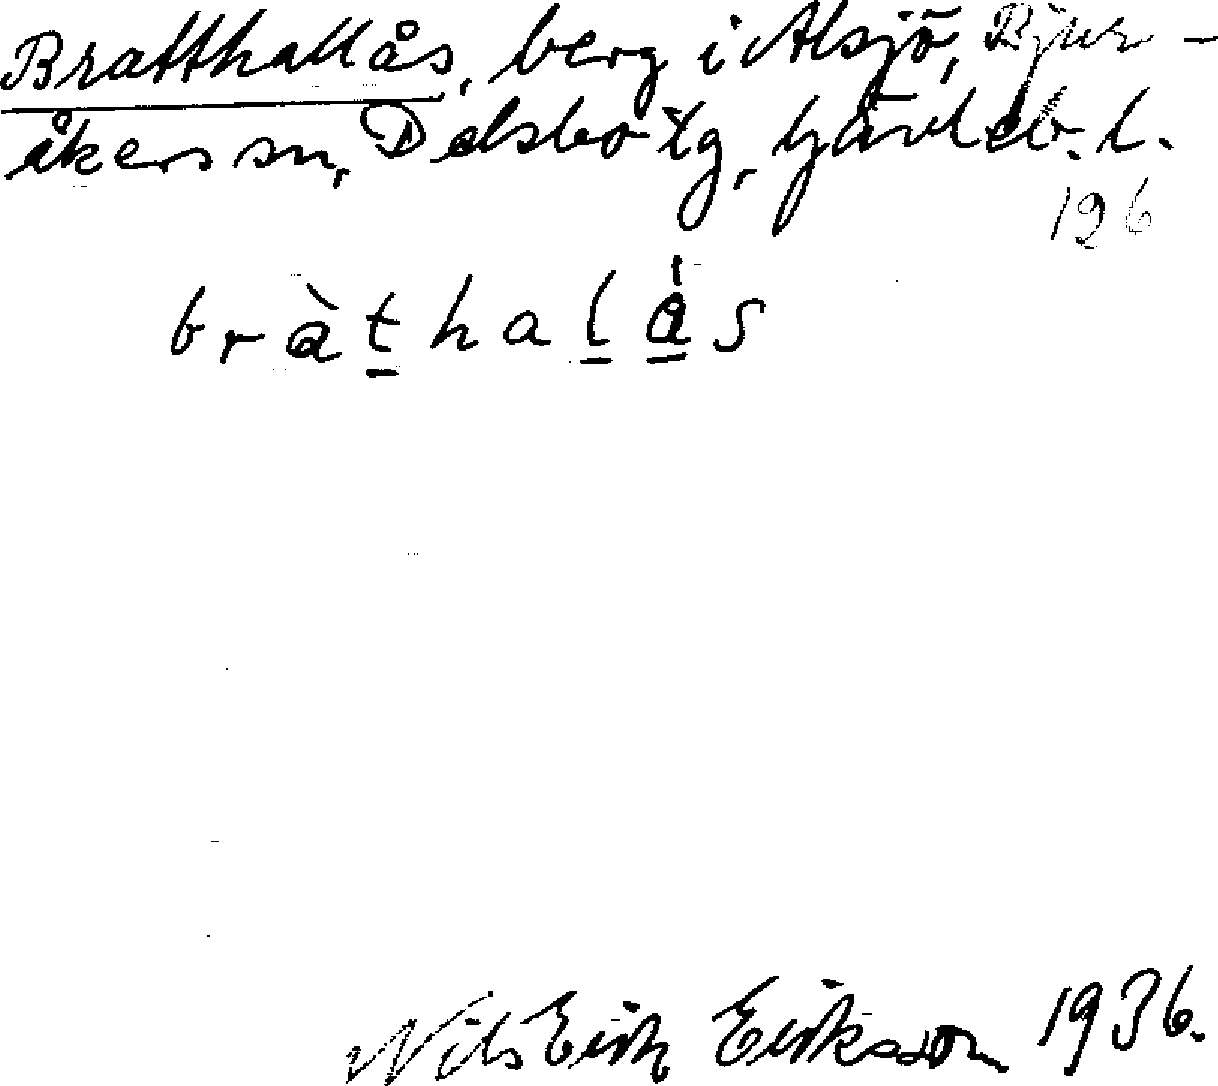 Bratthallås, berg i Alsjö, Bjur-
åkers sn, Delsbo tg, Gävleb. l.
196
bràt̲hal̲å̲s
Nils Erik Eriksson 1936.